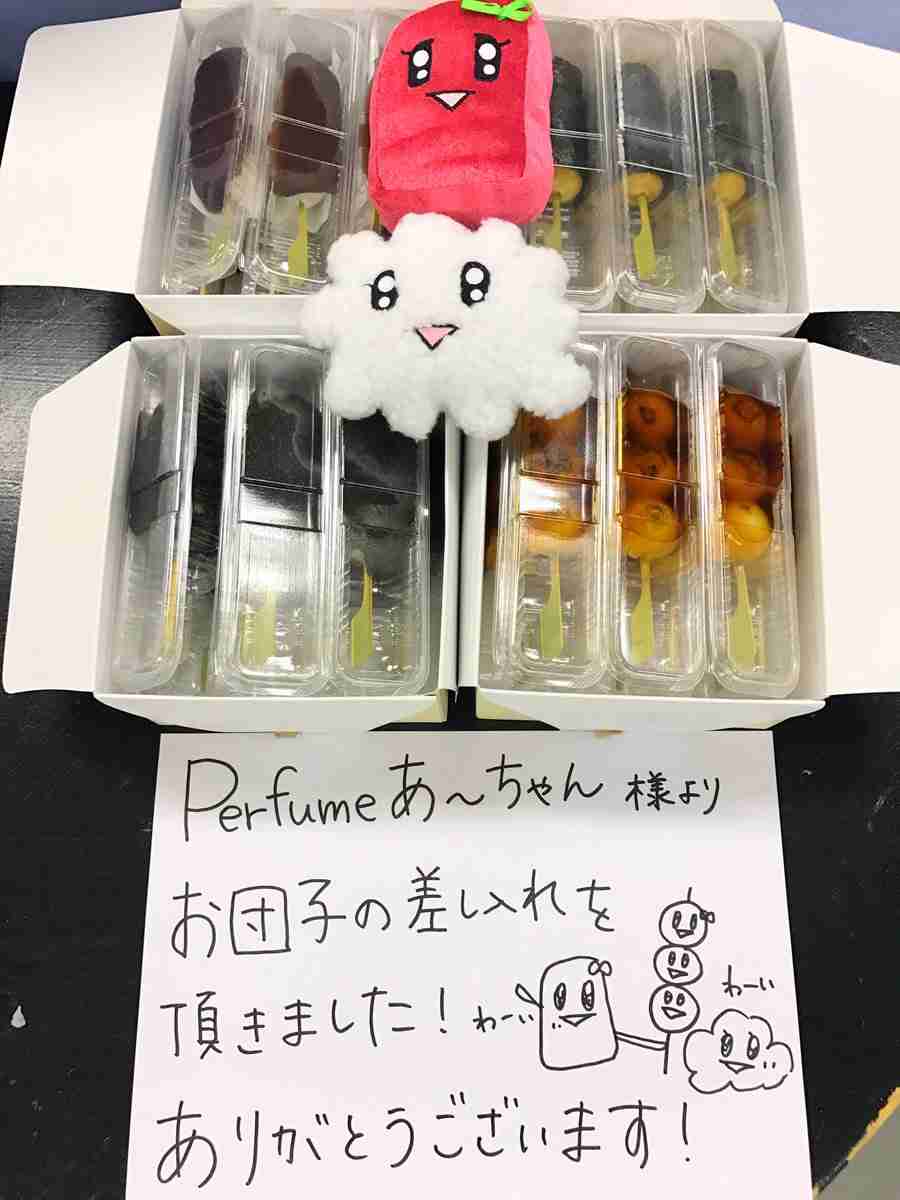 Perfumeあ〜ちゃん様より
お団子の差し入れを
頂きました!
わーい
わーい
ありがとうございます!